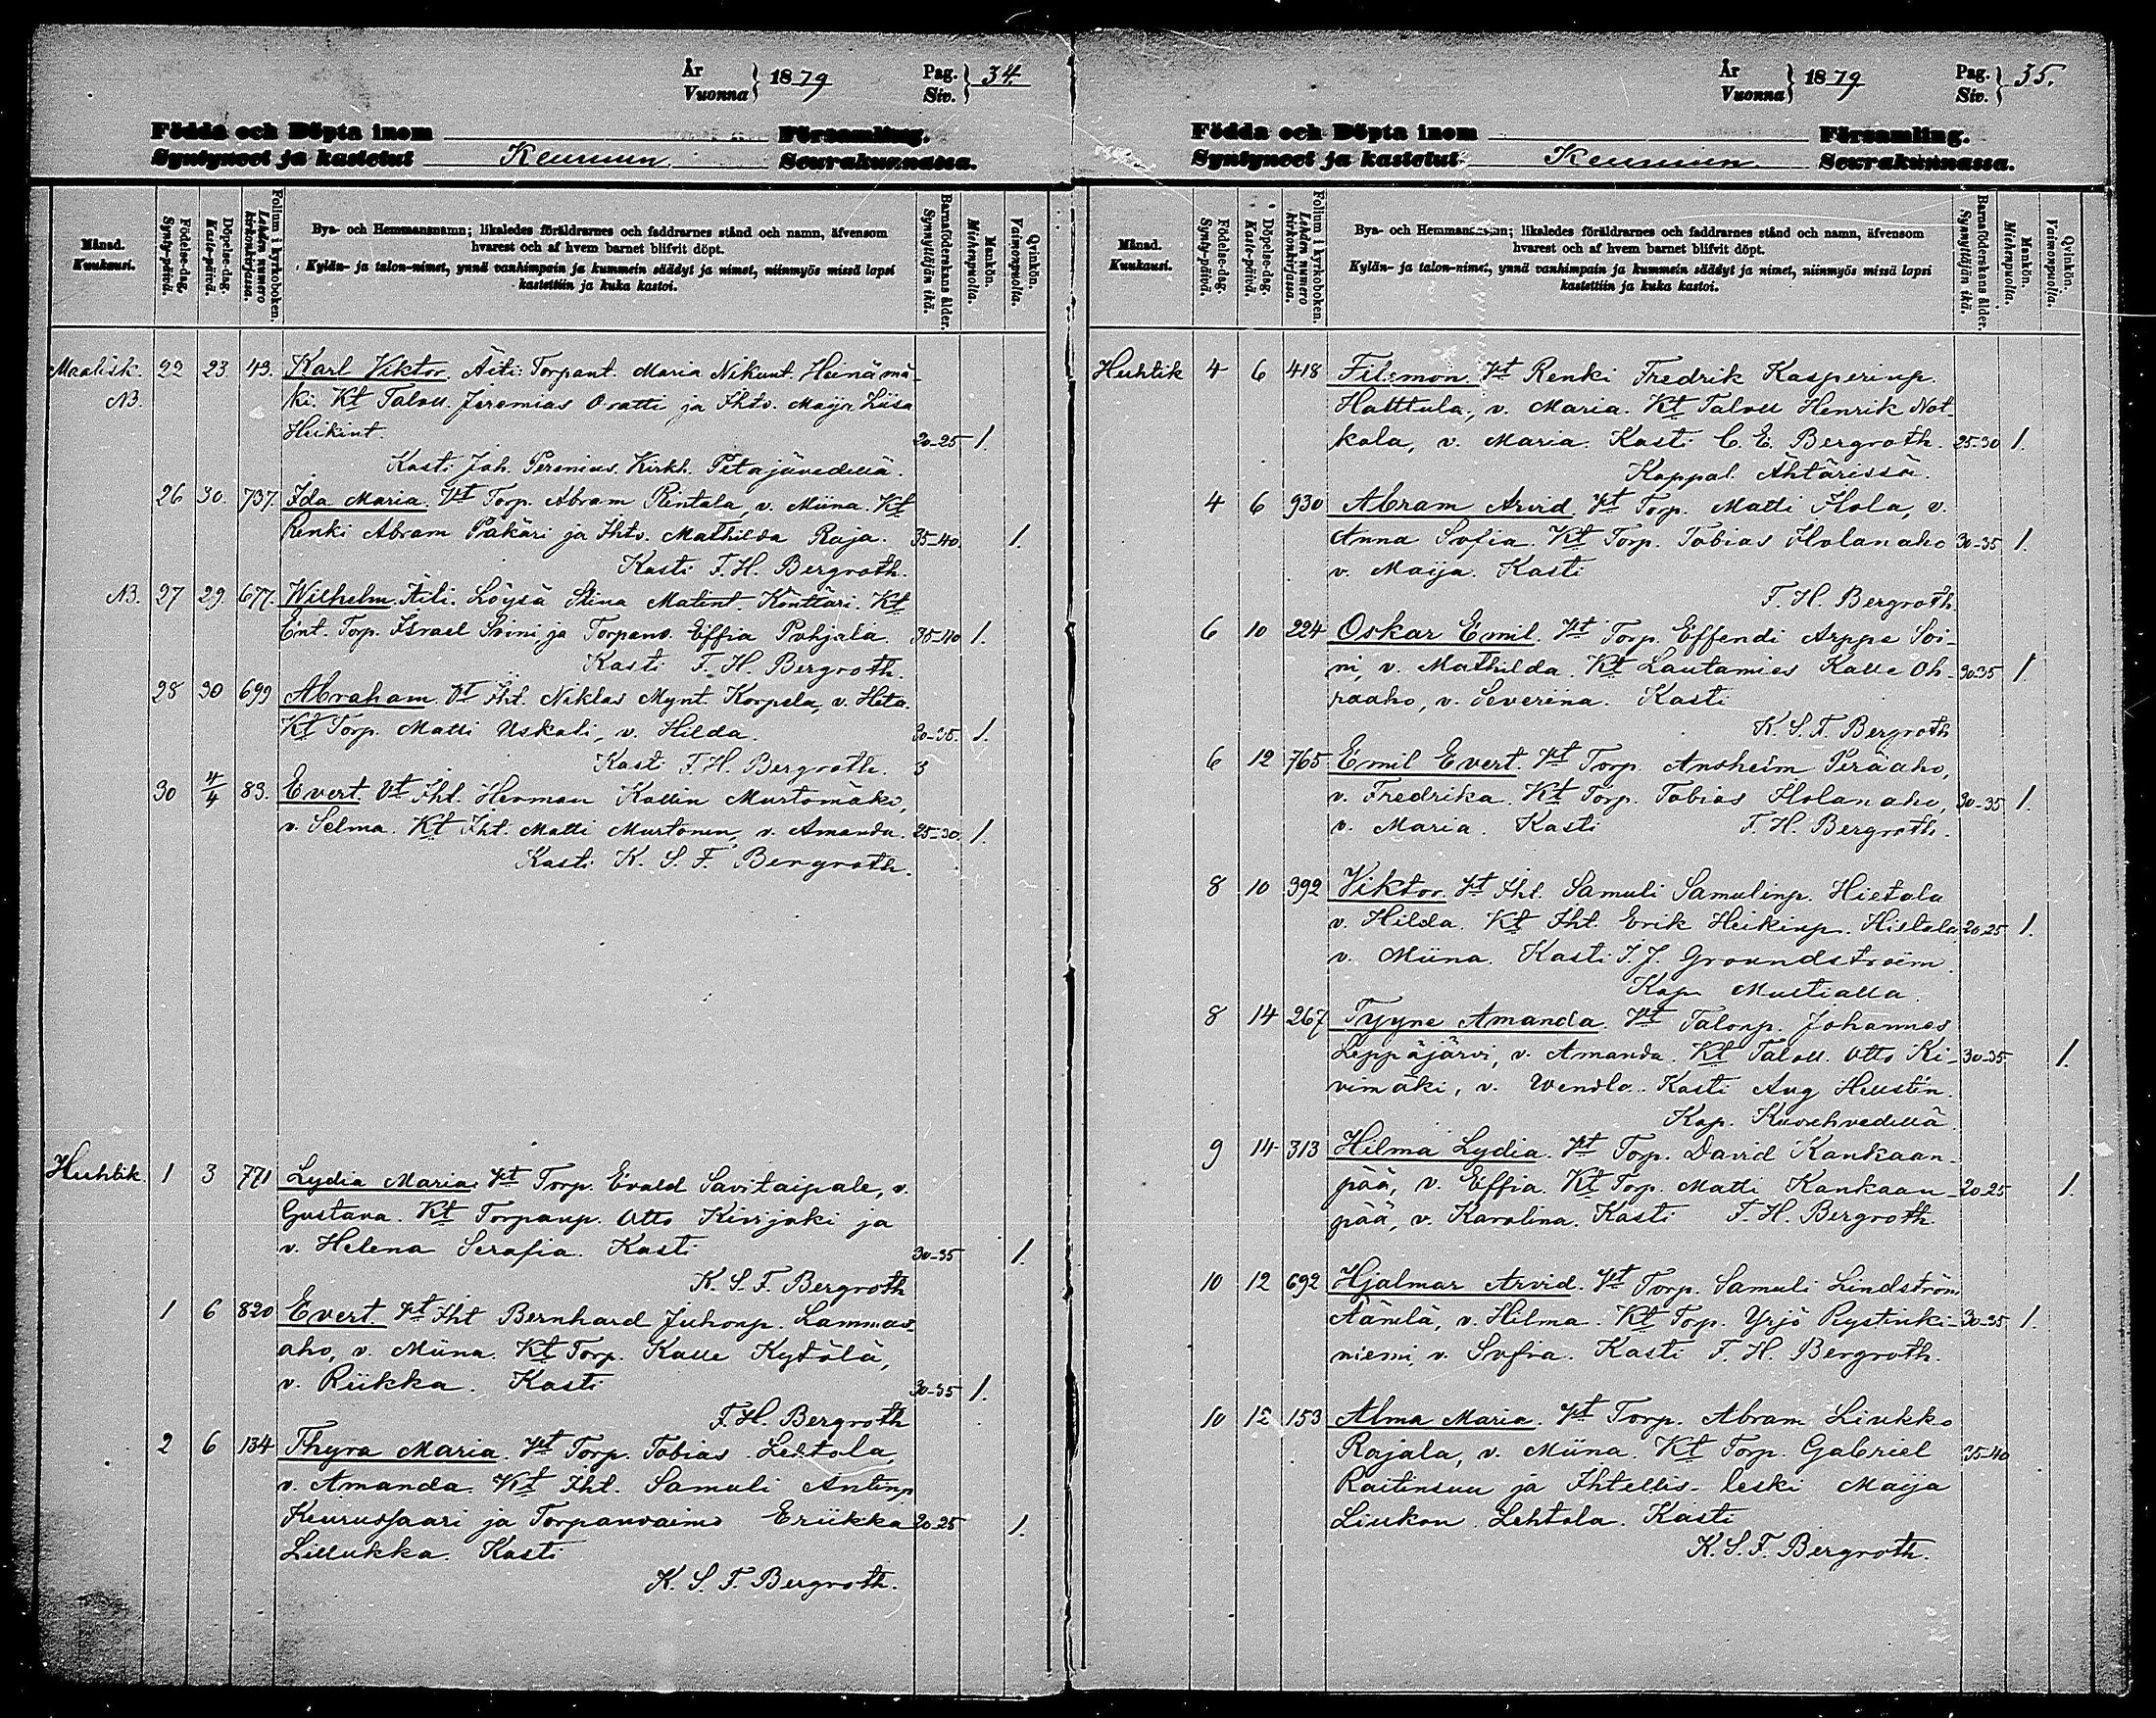 År
Vuonna } 1879
Pag.
Siv. } 34.
Födda och Döpta inom Församling.
Syntyneet ja kastetut Keuruun Seurakunnassa.
Månad.
Kuukausi.
Födelse-dag.
Synty-päivä.
Döpelse-dag.
Kaste-päivä.
Folium i kyrkoboken.
Lehden numero kirkonkirjassa.
Bya- och Hemmansnamn; likaledes föräldrarnes och faddrarnes stånd och namn, äfvensom
hvarest och af hvem barnet blifvit döpt.
Kylän- ja talon-nimet, ynnä vanhimpain ja kummein säädyt ja nimet, niinmyös missä lapsi
kastettiin ja kuka kastoi.
Barnaföderskans ålder.
Synnyttäjän ikä.
Mankön.
Miehenpuolia.
Qvinkön.
Vaimonpuolia.
Maalisk. 22 23 43. Karl Viktor. Äiti: Torpant. Maria Nikunt. Heinämä-
NB. ki. Kt Taloll. Jeremias Oratti ja Ihtv. Maija Liisa
Heikint. 20-25 1.
Kasti Joh. Perenius. Kirkh. Petäjävedellä.
26 30. 737. Ida Maria. Vt Torp. Abram Rintala, v. Miina. Kt
Renki Abram Pakäri ja Ihtv. Mathilda Raja. 35-40. 1.
Kasti F. H. Bergroth.
NB. 27 29 677. Wilhelm. Äiti. Löysä Stina Matint. Könttäri. Kt
Ent. Torp. Israel Soini ja Torpanv. Effia Pohjala. 35-40 1.
Kasti F. H. Bergroth.
28 30 699 Abraham. Vt Iht. Niklas Mynt. Korpela, v. Heta.
Kt Torp. Matti Uskali, v. Hilda. 30-35. 1.
Kasti F. H. Bergroth. 3
30 4/4 83. Evert. Vt Iht. Herman Kallin Murtomäki,
v. Selma. Kt Iht. Matti Murtonen, v. Amanda. 25-30. 1.
Kasti K. S. F. Bergroth.
Huhtik. 1 3 771 Lydia Maria. Vt Torp. Evald Savitaipale, v.
Gustava. Kt Torpanp. Otto Kivijoki ja
v. Helena Serafia. Kasti 30-35 1.
K. S. F. Bergroth
1 6 820 Evert. Vt Iht Bernhard Juhonp. Lammas-
aho, v. Miina. Kt Torp. Kalle Kytölä,
v. Riikka. Kasti 30-35 1.
F. H. Bergroth
2 6 134 Thyra Maria. Vt Torp. Tobias Lehtola,
v. Amanda. Kt Iht. Samuli Antinp
Keurussaari ja Torpanvaimo Eriikka 20-25 1.
Lillukka. Kasti
K. S. F. Bergroth.
År
Vuonna } 1879.
Pag.
Siv. } 35.
Födda och Döpta inom Församling.
Syntyneet ja kastetut Keuruun Seurakunnassa.
Månad.
Kuukausi.
Födelse-dag.
Synty-päivä.
Döpelse-dag.
Kaste-päivä.
Folium i kyrkoboken.
Lehden numero kirkonkirjassa.
Bya- och Hemmansnamn; likaledes föräldrarnes och faddrarnes stånd och namn, äfvensom
hvarest och af hvem barnet blifvit döpt.
Kylän- ja talon-nimet, ynnä vanhimpain ja kummein säädyt ja nimet, niinmyös missä lapsi
kastettiin ja kuka kastoi.
Barnaföderskans ålder.
Synnyttäjän ikä.
Mankön.
Miehenpuolia.
Qvinkön.
Vaimonpuolia.
Huhtik 4 6 418 Filemon. Vt Renki Fredrik Kasperinp.
Halttula, v. Maria. Kt Taloll Henrik Not-
kola, v. Maria. Kasti C. E. Bergroth. 25-30 1.
Kappal. Ähtärissä.
4 6 930 Abram Arvid. Vt Torp. Matti Ilola, v.
Anna Sofia. Kt Torp. Tobias Holanaho 30-35 1.
v. Maija. Kasti
F. H. Bergroth
6 10 224 Oskar Emil. Vt Torp. Effendi Arppe Soi-
ni, v. Mathilda. Kt Lautamies Kalle Oh- 30-35 1.
raaho, v. Severina. Kasti
K. S. F. Bergroth
6 12 765 Emil Evert. Vt Torp. Ansheim Peräaho,
v. Fredrika. Kt Torp. Tobias Holanaho, 30-35 1.
v. Maria. Kasti F. H. Bergroth.
8 10 392 Viktor. Vt Iht. Samuli Samulinp. Hietala
v. Hilda. Kt Iht. Erik Heikinp. Hietala, 20-25 1.
v. Miina. Kasti I. J. Groundstroëm.
Kap. Multialla.
8 14 267 Tyyne Amanda. Vt Talonp. Johannes
Leppäjärvi, v. Amanda. Kt Taloll. Otto Ki- 30-35 1.
vimäki, v. Wendla. Kasti Aug Hellstén.
Kap. Kuorehvedellä.
9 14 313 Hilma Lydia. Vt Torp. David Kankaan-
pää, v. Effia. Kt Torp. Matti Kankaan- 20-25 1.
pää, v. Karolina. Kasti F. H. Bergroth.
10 12 692 Hjalmar Arvid. Vt Torp. Samuli Lindström
Äänilä, v. Hilma. Kt Torp. Yrjö Pystinki- 30-35 1.
niemi, v. Sofia. Kasti F. H. Bergroth.
10 12 153 Alma Maria. Vt Torp. Abram Liukko
Rajala, v. Miina. Kt Torp. Gabriel 35-40
Raitinsuu ja Ihtellis- leski Maija
Liukon. Lehtola. Kasti
K. S. F. Bergroth.